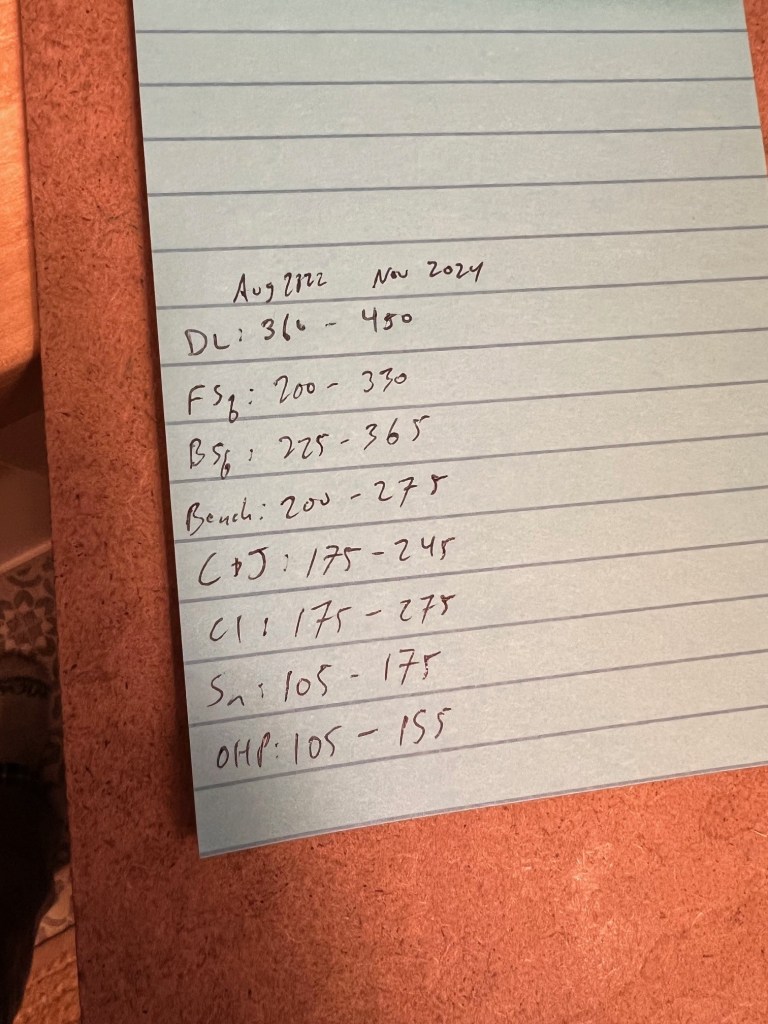 Aug 2022 Nov 2024
DL: 360 - 450
FSq: 200 - 330
BSq: 225 - 365
Bench: 200 - 275
C+J: 175 - 245
Cl: 175 - 275
Sn: 105 - 175
OHP: 105 - 155